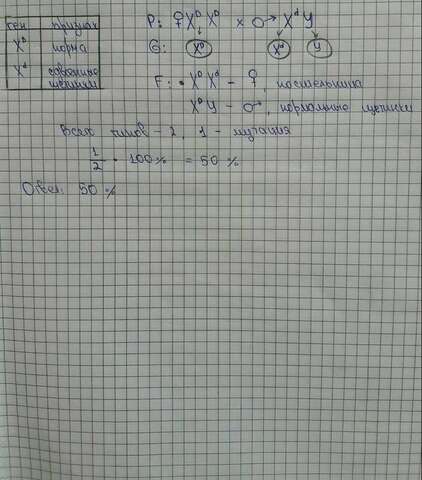 ген признак
X^D норма
X^d сдвоенные щетинки
P: ♀X^D X^D × ♂ X^d Y
G: X^D X^d Y
F: X^D X^d - ♀, носительница
X^D Y - ♂, нормальные щетинки
Всего типов - 2, 1 - мутация
1/2 · 100% = 50%
Ответ: 50%